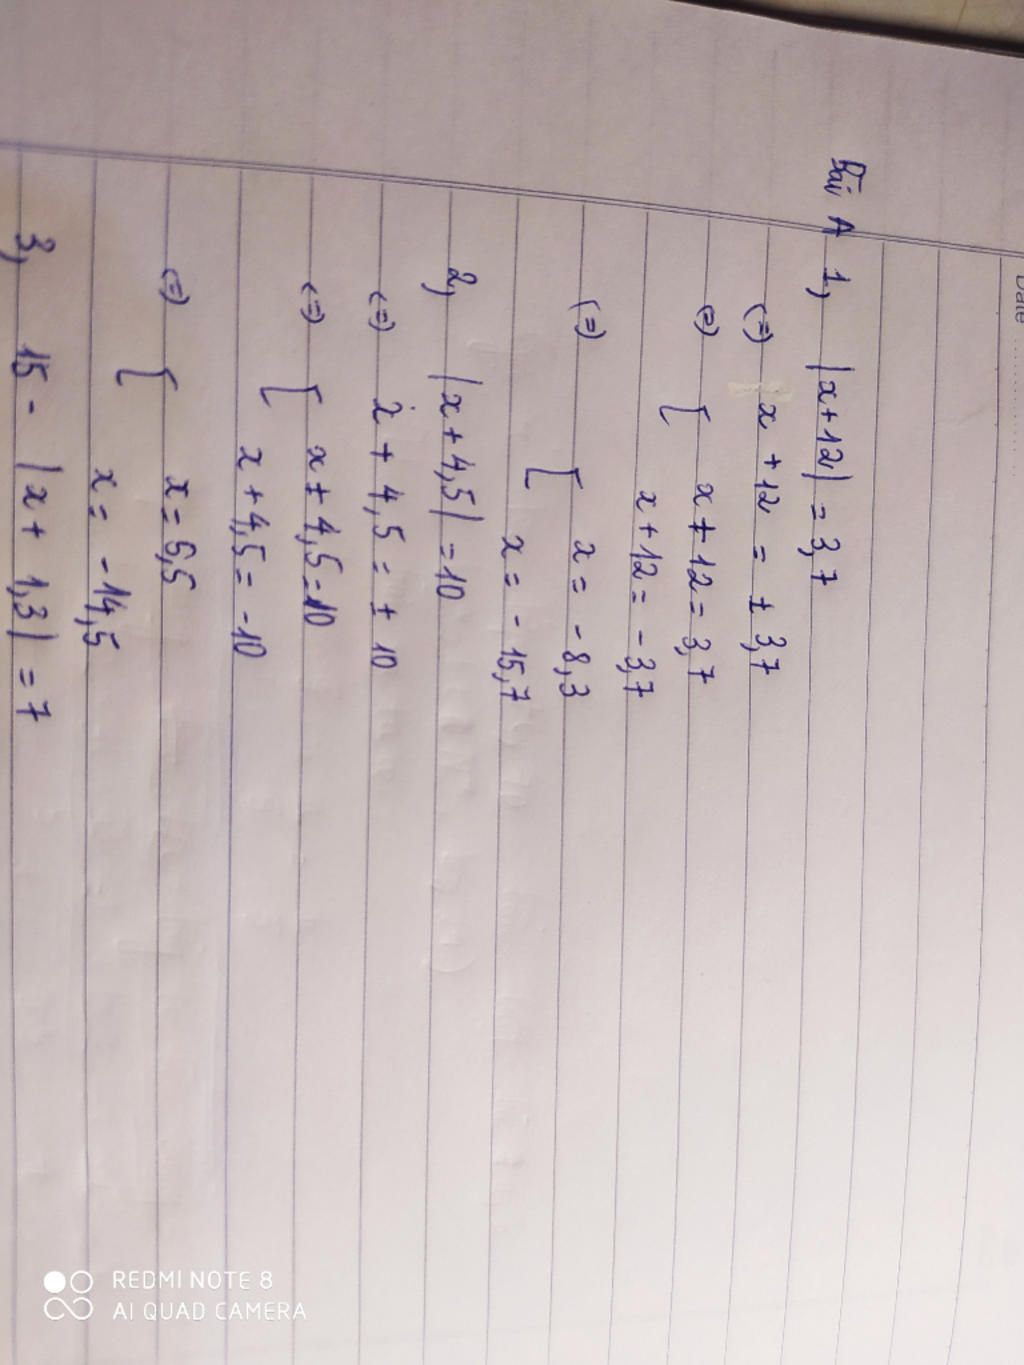 Date ..............
Bài A 1, |x+12| = 3,7
(=) x + 12 = ± 3,7
(=) [ x + 12 = 3,7
x + 12 = - 3,7
(=) [ x = - 8,3
x = - 15,7
2, |x + 4,5| = 10
(=) x + 4,5 = ± 10
(=) [ x + 4,5 = 10
x + 4,5 = -10
(=) [ x = 5,5
x = -14,5
3, 15 - |x + 1,3| = 7
REDMI NOTE 8
AI QUAD CAMERA